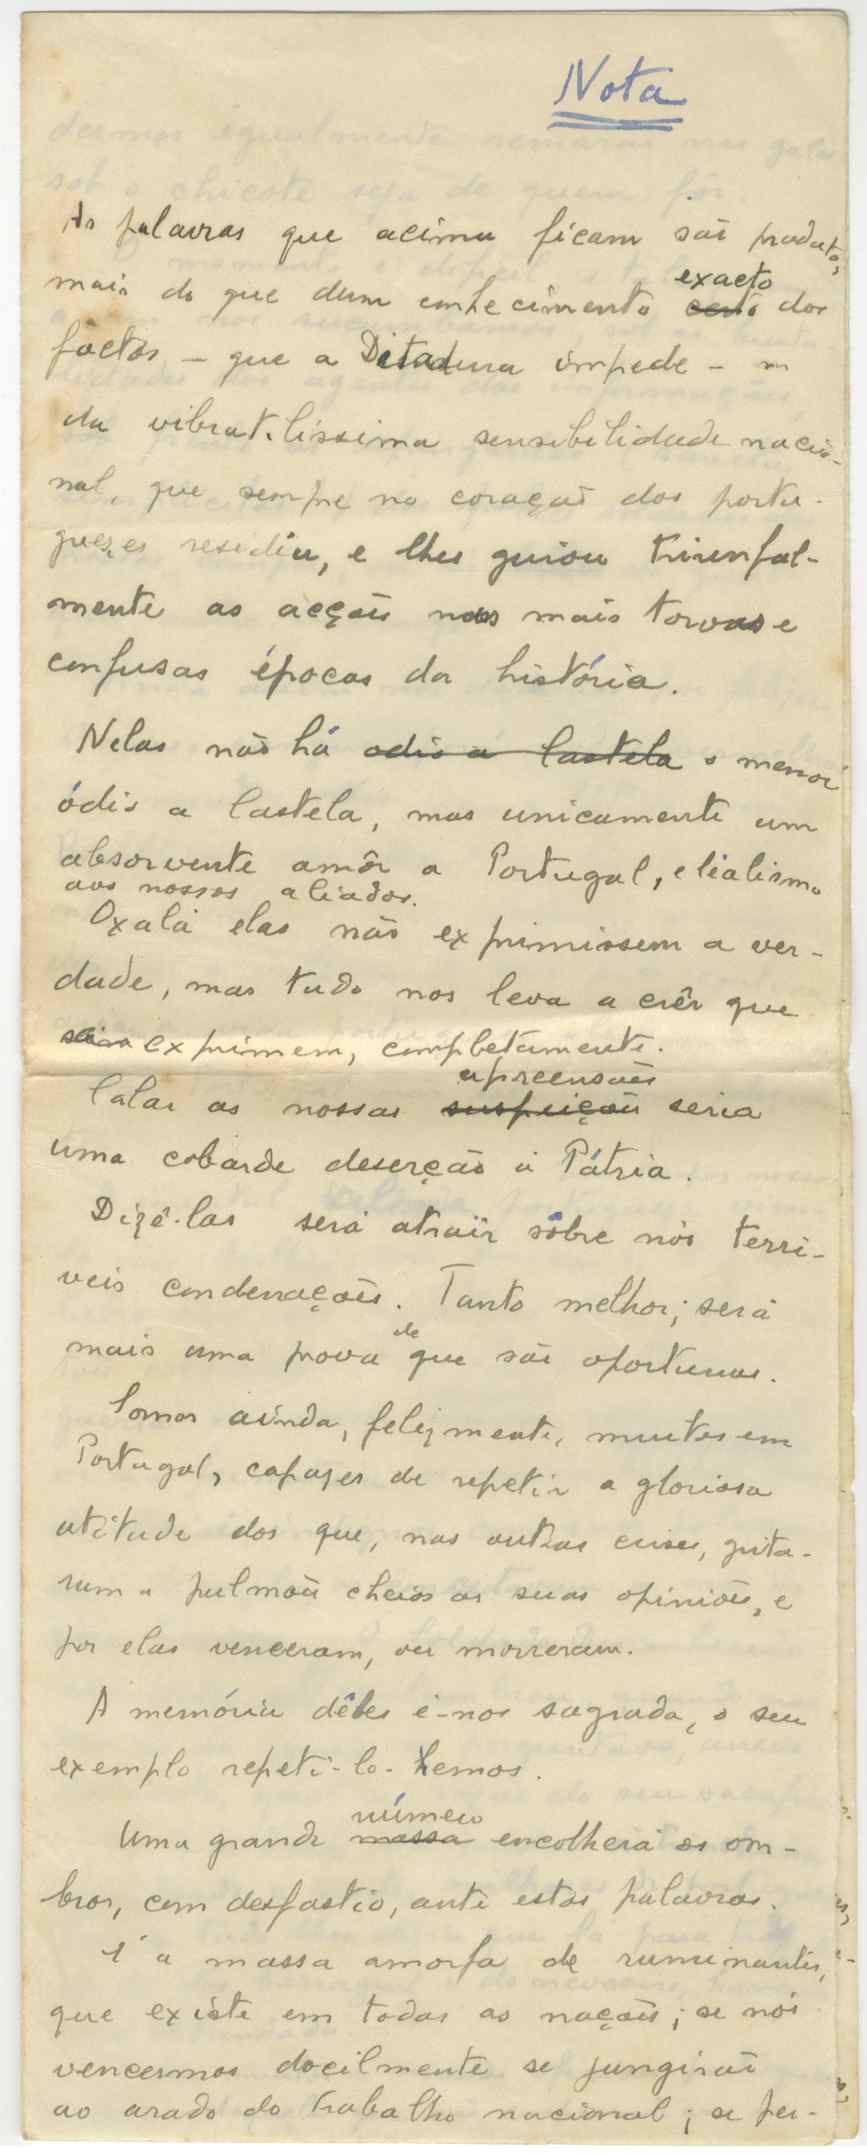 Nota
As palavras que acima ficam são produto,
exacto
mais do que dum conhecimento certo dos
factos — que a Ditadura impede —
da vibratilíssima sensibilidade nacio-
nal, que sempre no coração dos portu-
guezes residiu, e lhes guiou triunfal-
mente as acções nas mais torvas e
confusas épocas da história.
Nelas não há odio a Castela o menor
ódio a Castela, mas unicamente um
absorvente amôr a Portugal, e lialismo
aos nossos aliados.
Oxalá elas não exprimissem a ver-
dade, mas tudo nos leva a crêr que
exprimem, completamente.
apreensões
Calar as nossas suspeições seria
uma cobarde deserção á Pátria.
Dizê-las será atraír sôbre nós terri-
veis condenações. Tanto melhor; será
de
mais uma prova que são oportunas.
Somos ainda, felizmente, muitos em
Portugal, capazes de repetir a gloriosa
atitude dos que, nas outras crises, grita-
ram a pulmões cheios as suas opiniões, e
por elas venceram, ou morreram.
A memória dêles é-nos sagrada, o seu
exemplo repeti-lo-hemos.
número
Uma grande massa encolherá os om-
bros, com desfastio, ante estas palavras.
É a massa amorfa de ruminantes,
que existe em todas as nações; se nós
vencermos docilmente se jungirão
ao arado do trabalho nacional; se per-